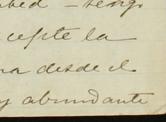 tengo
cepte la
na desde el
y abundante